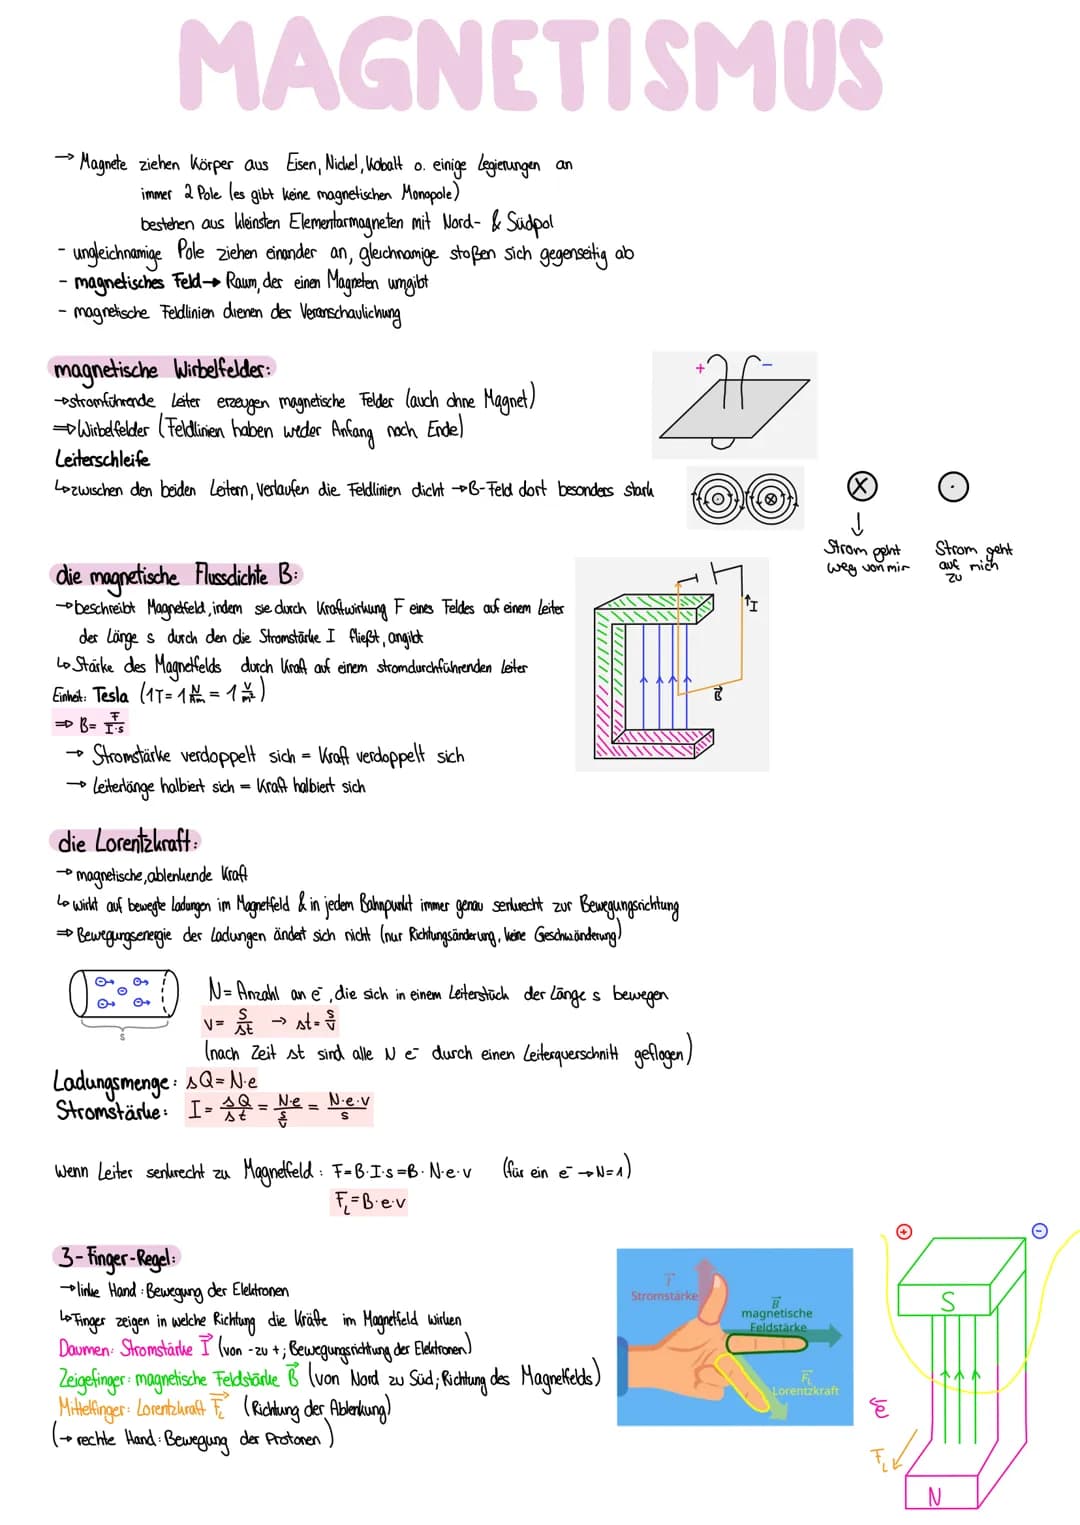 MAGNETISMUS
→ Magnete ziehen Körper aus Eisen, Nickel, Kobalt o. einige Legierungen an
immer 2 Pole (es gibt keine magnetischen Monopole)
bestehen aus kleinsten Elementarmagneten mit Nord- & Südpol
- ungleichnamige Pole ziehen einander an, gleichnamige stoßen sich gegenseitig ab
- magnetisches Feld → Raum, der einen Magneten umgibt
- magnetische Feldlinien dienen der Veranschaulichung
magnetische Wirbelfelder:
→ stromführende Leiter erzeugen magnetische Felder (auch ohne Magnet)
⇒ Wirbelfelder (Feldlinien haben weder Anfang noch Ende)
Leiterschleife
↳ zwischen den beiden Leitern, verlaufen die Feldlinien dicht → B-Feld dort besonders stark
+ -
X
↓
Strom geht
weg von mir
Strom geht
auf mich
zu
die magnetische Flussdichte B:
→ beschreibt Magnetfeld, indem sie durch Kraftwirkung F eines Feldes auf einem Leiter
der Länge s durch den die Stromstärke I fließt, angibt
↳ Stärke des Magnetfelds durch Kraft auf einem stromdurchführenden Leiter
Einheit: Tesla (1T = 1 N/Am = 1 V/m²)
⇒ B = F/I·s
→ Stromstärke verdoppelt sich = Kraft verdoppelt sich
→ Leiterlänge halbiert sich = Kraft halbiert sich
↑I
B⃗
die Lorentzkraft:
→ magnetische, ablenkende Kraft
↳ wirkt auf bewegte Ladungen im Magnetfeld & in jedem Bahnpunkt immer genau senkrecht zur Bewegungsrichtung
⇒ Bewegungsenergie der Ladungen ändert sich nicht (nur Richtungsänderung, keine Geschwänderung)
s
N = Anzahl an e⁻, die sich in einem Leiterstück der Länge s bewegen
v = s/Δt → Δt = s/v
(nach Zeit Δt sind alle N e⁻ durch einen Leiterquerschnitt geflogen)
Ladungsmenge: ΔQ = N·e
Stromstärke: I = ΔQ/Δt = N·e/(s/v) = N·e·v/s
Wenn Leiter senkrecht zu Magnetfeld: F = B·I·s = B·N·e·v (für ein e⁻ → N=1)
F_L = B·e·v
3-Finger-Regel:
→ linke Hand: Bewegung der Elektronen
↳ Finger zeigen in welche Richtung die Kräfte im Magnetfeld wirken
Daumen: Stromstärke I⃗ (von - zu +; Bewegungsrichtung der Elektronen)
Zeigefinger: magnetische Feldstärke B⃗ (von Nord zu Süd; Richtung des Magnetfelds)
Mittelfinger: Lorentzkraft F_L⃗ (Richtung der Ablenkung)
(→ rechte Hand: Bewegung der Protonen)
I⃗
Stromstärke
B⃗
magnetische
Feldstärke
F⃗_L
Lorentzkraft
+ -
S
e⁻
F_L
N